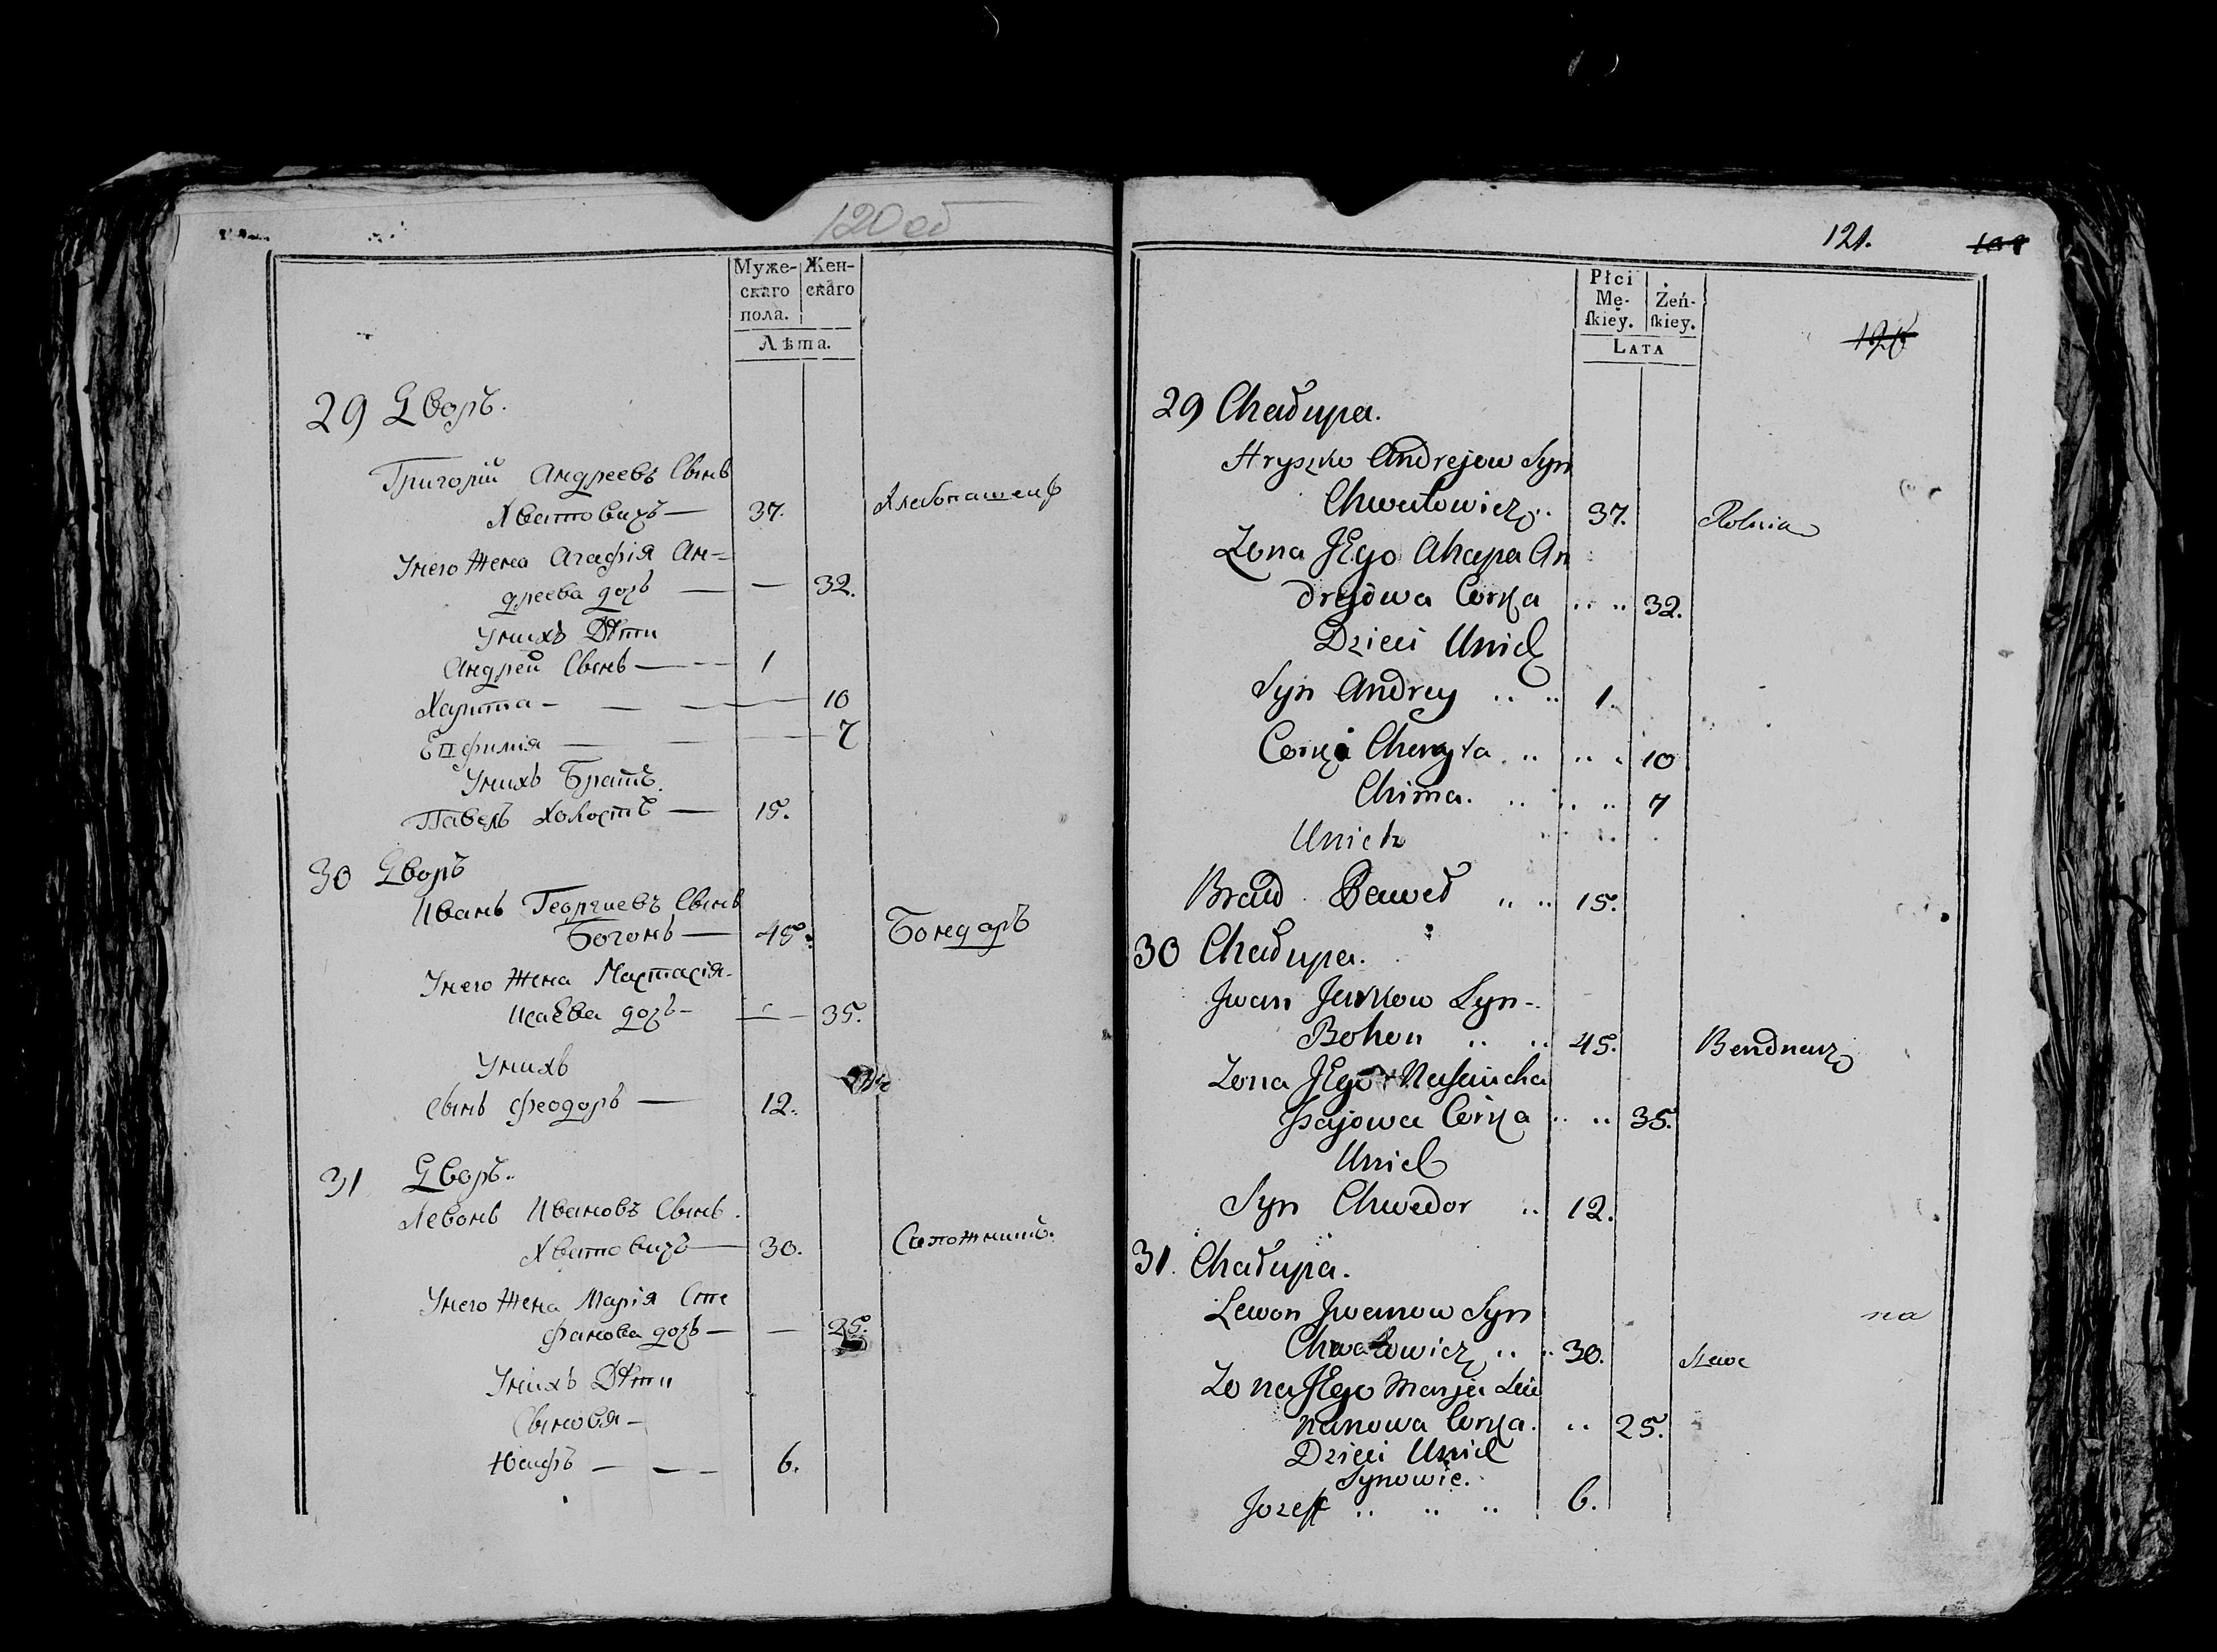 120 об
Муже-
скаго
пола.
Жен-
скаго
Лѣта.
29 Дворъ.
Григорій Андреевъ Сынъ
Хватовичъ — 37. Хлебопашецъ
Унего Жена Агафія Ан-
дреева дочь — — 32.
Унихъ Дѣти
Андрей Сынъ — — 1
Харита — — — 10
Епфимія — — — 7
Унихъ Братъ
Павелъ Холостъ — 15.
30 Дворъ
Иванъ Георгиевъ Сынъ
Богонь — 45. Бондаръ
Унего Жена Настасія
Исаева дочь — — 35.
Унихъ
Сынъ Феодоръ — 12.
31 Дворъ.
Левонъ Ивановъ Сынъ.
Хватовичъ — 30. Сапожникъ.
Унего Жена Марія Сте
фанова дочь — — 25.
Унихъ Дѣти
Сыновья —
Юсифъ — — — 6.
121.
Płci
Mę-
skiey.
Żeń-
skiey.
LATA
29 Chałupa.
Hryszko Andrejow Syn
Chwatowicz .. 37. Rolnia
Zona JEgo Ahapa An
drejowa Corka .. .. 32.
Dzieci Unich
Syn Andrey .. .. 1.
Corka Charyta .. .. . 10
Chima. .. .. .. 7
Unich
Bratt Paweł .. .. 15.
30 Chałupa.
Jwan Jurkow Syn -.
Bohon .. .. 45. Bendnarz
Zona JEgo Nastaucha
Jsajowa Corka .. .. 35.
Unich
Syn Chwedor .. 12.
31. Chałupa.
Lewon Jwanow Syn
na
Chwatowicz .. .. 30. Szwe
Zona JEgo Marja Scie
nanowa Corka. .. 25.
Dzieci Unich
Synowie.
Jozeff .. .. .. 6.